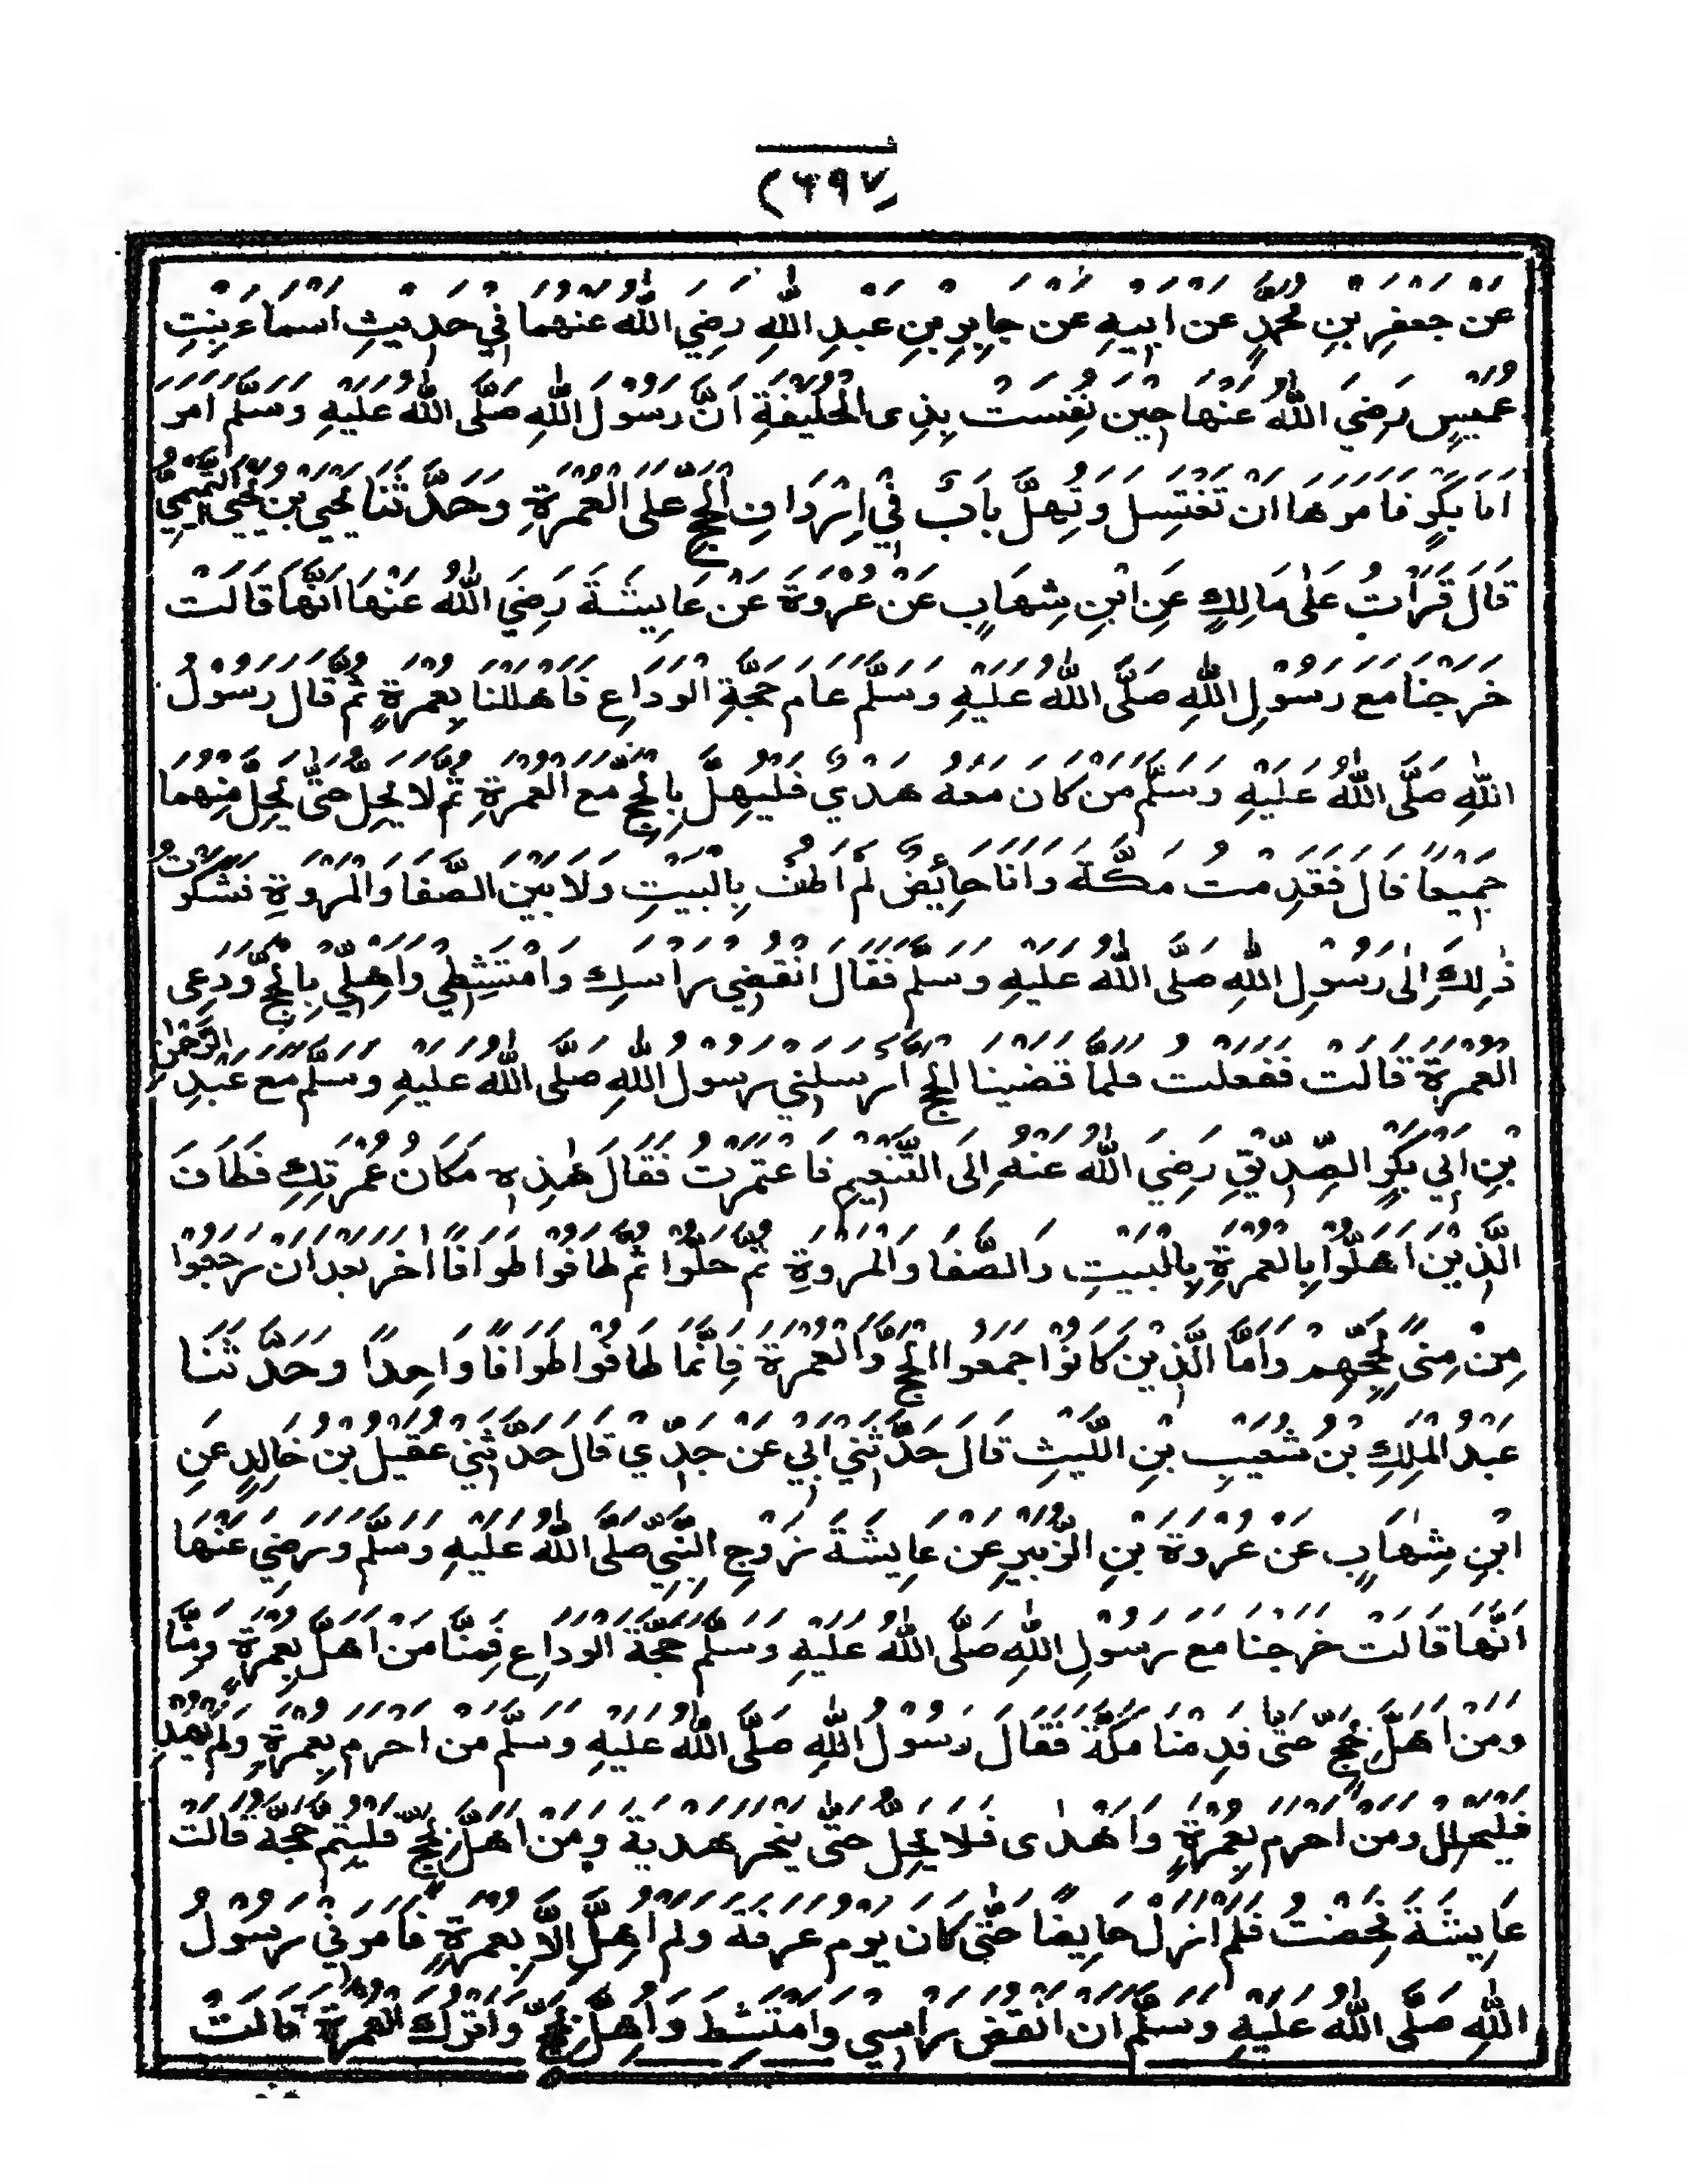 (٦٩٧)
عَنْ جَعْفَرِ بْنِ مُحَمَّدٍ عَنْ اَبِيْهِ عَنْ جَابِرِ بْنِ عَبْدِ اللّٰهِ رَضِيَ اللّٰهُ عَنْهُمَا فِيْ حَدِيْثِ اَسْمَاءَ بِنْتِ
عُمَيْسٍ رَضِيَ اللّٰهُ عَنْهَا حِيْنَ نُفِسَتْ بِذِى الْحُلَيْفَةِ اَنَّ رَسُوْلَ اللّٰهِ صَلَّى اللّٰهُ عَلَيْهِ وَسَلَّمَ اَمَرَ
اَبَا بَكْرٍ فَاَمَرَهَا اَنْ تَغْتَسِلَ وَتُهِلَّ بَابٌ فِيْ اِرْدَافِ الْحَجِّ عَلَى الْعُمْرَةِ وَحَدَّثَنَا يَحْيَى بْنُ يَحْيَى التَّمِيْمِيُّ
قَالَ قَرَأْتُ عَلٰى مَالِكٍ عَنِ ابْنِ شِهَابٍ عَنْ عُرْوَةَ عَنْ عَايِشَةَ رَضِيَ اللّٰهُ عَنْهَا اَنَّهَا قَالَتْ
خَرَجْنَا مَعَ رَسُوْلِ اللّٰهِ صَلَّى اللّٰهُ عَلَيْهِ وَسَلَّمَ عَامَ حَجَّةِ الْوَدَاعِ فَاَهْلَلْنَا بِعُمْرَةٍ ثُمَّ قَالَ رَسُوْلُ
اللّٰهِ صَلَّى اللّٰهُ عَلَيْهِ وَسَلَّمَ مَنْ كَانَ مَعَهُ هَدْيٌ فَلْيُهِلَّ بِالْحَجِّ مَعَ الْعُمْرَةِ ثُمَّ لَا يَحِلُّ حَتّٰى يَحِلَّ مِنْهُمَا
جَمِيْعًا قَالَ فَقَدِمْتُ مَكَّةَ وَاَنَا حَائِضٌ لَمْ اَطُفْ بِالْبَيْتِ وَلَا بَيْنَ الصَّفَا وَالْمَرْوَةِ فَشَكَوْتُ
ذٰلِكَ اِلٰى رَسُوْلِ اللّٰهِ صَلَّى اللّٰهُ عَلَيْهِ وَسَلَّمَ فَقَالَ انْقُضِيْ رَاْسَكِ وَامْتَشِطِيْ وَاَهِلِّيْ بِالْحَجِّ وَدَعِى
الْعُمْرَةَ قَالَتْ فَفَعَلْتُ فَلَمَّا قَضَيْنَا الْحَجَّ اَرْسَلَنِيْ رَسُوْلُ اللّٰهِ صَلَّى اللّٰهُ عَلَيْهِ وَسَلَّمَ مَعَ عَبْدِ الرَّحْمٰنِ
بْنِ اَبِيْ بَكْرٍ الصِّدِّيْقِ رَضِيَ اللّٰهُ عَنْهُ اِلَى التَّنْعِيْمِ فَاعْتَمَرْتُ فَقَالَ هٰذِهِ مَكَانُ عُمْرَتِكِ فَطَافَ
الَّذِيْنَ اَهَلُّوْا بِالْعُمْرَةِ بِالْبَيْتِ وَالصَّفَا وَالْمَرْوَةِ ثُمَّ حَلُّوْا ثُمَّ طَافُوْا طَوَافًا اٰخَرَ بَعْدَ اَنْ رَجَعُوْا
مِنْ مِنًى لِحَجِّهِمْ وَاَمَّا الَّذِيْنَ كَانُوْا جَمَعُوا الْحَجَّ وَالْعُمْرَةَ فَاِنَّمَا طَافُوْا طَوَافًا وَاحِدًا وَحَدَّثَنَا
عَبْدُ الْمَلِكِ بْنُ شُعَيْبِ بْنِ اللَّيْثِ قَالَ حَدَّثَنِيْ اَبِيْ عَنْ جَدِّيْ قَالَ حَدَّثَنِيْ عُقَيْلُ بْنُ خَالِدٍ عَنِ
ابْنِ شِهَابٍ عَنْ عُرْوَةَ بْنِ الزُّبَيْرِ عَنْ عَايِشَةَ زَوْجِ النَّبِيِّ صَلَّى اللّٰهُ عَلَيْهِ وَسَلَّمَ وَرَضِيَ عَنْهَا
اَنَّهَا قَالَتْ خَرَجْنَا مَعَ رَسُوْلِ اللّٰهِ صَلَّى اللّٰهُ عَلَيْهِ وَسَلَّمَ حَجَّةَ الْوَدَاعِ فَمِنَّا مَنْ اَهَلَّ بِعُمْرَةٍ وَمِنَّا
وَمَنْ اَهَلَّ بِحَجٍّ حَتّٰى قَدِمْنَا مَكَّةَ فَقَالَ رَسُوْلُ اللّٰهِ صَلَّى اللّٰهُ عَلَيْهِ وَسَلَّمَ مَنْ اَحْرَمَ بِعُمْرَةٍ وَلَمْ يُهْدِ
فَلْيَحْلِلْ وَمَنْ اَحْرَمَ بِعُمْرَةٍ وَاَهْدٰى فَلَا يَحِلُّ حَتّٰى يَنْحَرَ هَدْيَهُ وَمَنْ اَهَلَّ بِحَجٍّ فَلْيُتِمَّ حَجَّهُ قَالَتْ
عَايِشَةُ فَحِضْتُ فَلَمْ اَزَلْ حَايِضًا حَتّٰى كَانَ يَوْمُ عَرَفَةَ وَلَمْ اُهِلَّ اِلَّا بِعُمْرَةٍ فَاَمَرَنِيْ رَسُوْلُ
اللّٰهِ صَلَّى اللّٰهُ عَلَيْهِ وَسَلَّمَ اَنْ اَنْقُضَ رَاْسِي وَامْتَشِطَ وَاُهِلَّ بِحَجٍّ وَاَتْرُكَ الْعُمْرَةَ قَالَتْ